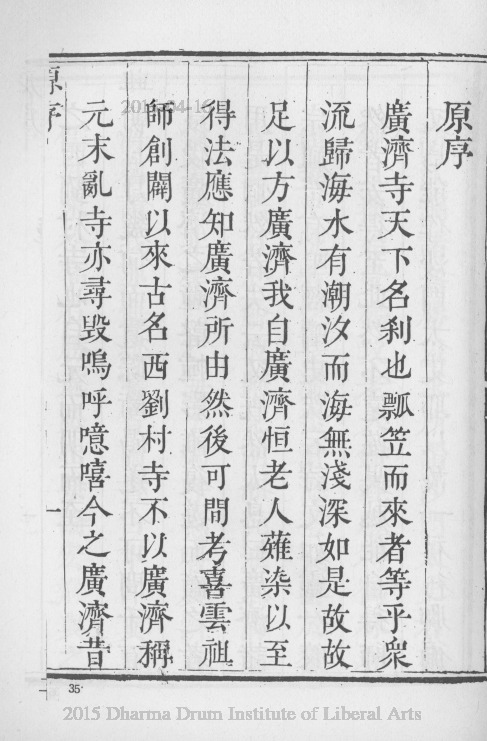 原序
廣濟寺天下名剎也瓢笠而來者等乎衆
流歸海水有潮汐而海無淺深如是故故
足以方廣濟我自廣濟恒老人薙染以至
得法應知廣濟所由然後可間考喜雲祖
師創闢以來古名西劉村寺不以廣濟稱
元末亂寺亦尋毀嗚呼噫嘻今之廣濟昔
原序
一
35
2015 Dharma Drum Institute of Liberal Arts